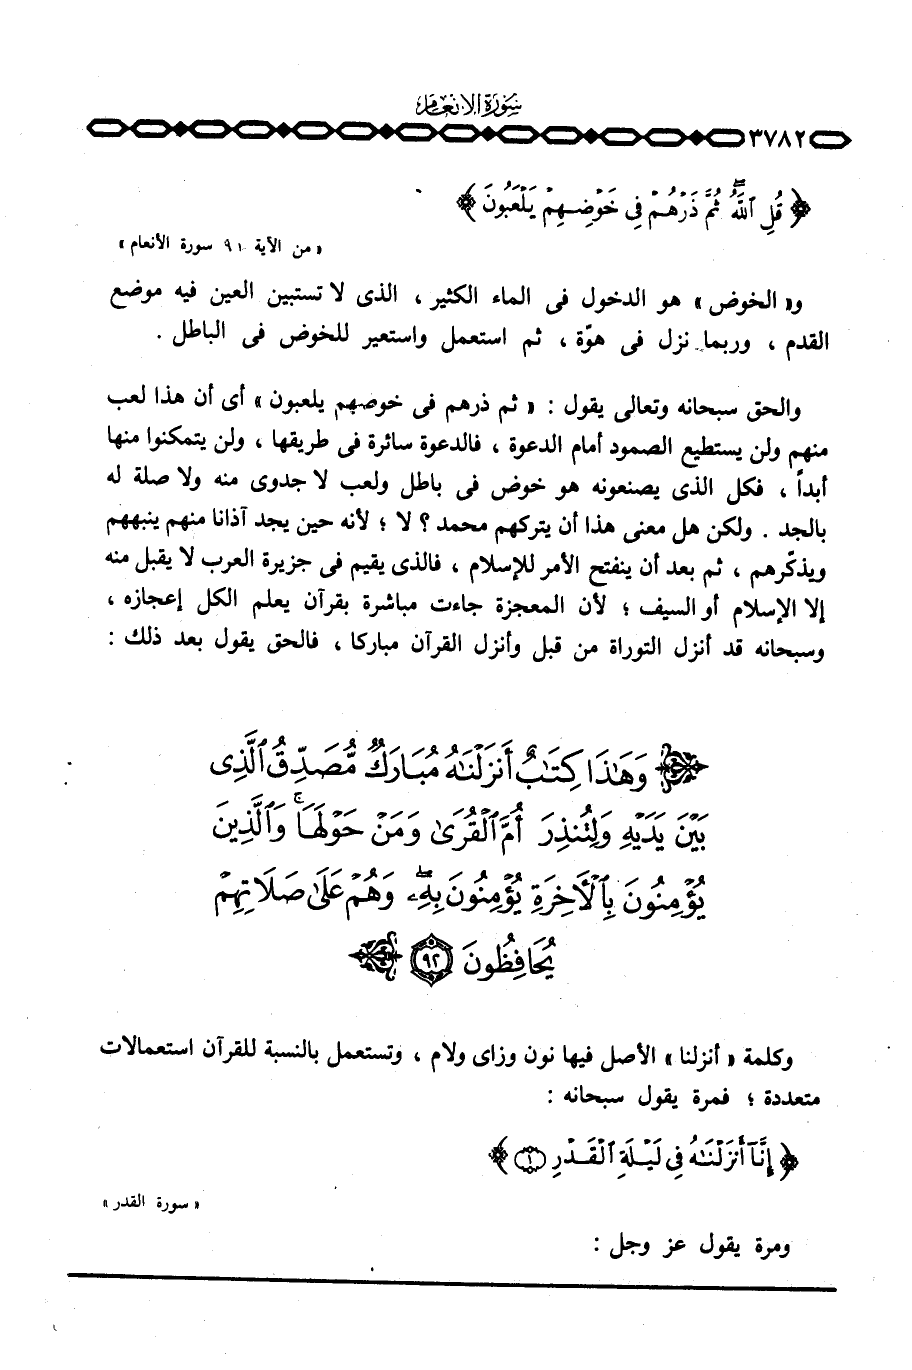 سورة الأنعام
٣٧٨٢
﴿ قُلِ ٱللَّهُ ۖ ثُمَّ ذَرْهُمْ فِى خَوْضِهِمْ يَلْعَبُونَ ﴾
« من الآية ٩١ سورة الأنعام »
و« الخوض » هو الدخول فى الماء الكثير ، الذى لا تستبين العين فيه موضع
القدم ، وربما نزل فى هوّة ، ثم استعمل واستعير للخوض فى الباطل .
والحق سبحانه وتعالى يقول : « ثم ذرهم فى خوصهم يلعبون » أى أن هذا لعب
منهم ولن يستطيع الصمود أمام الدعوة ، فالدعوة سائرة فى طريقها ، ولن يتمكنوا منها
أبداً ، فكل الذى يصنعونه هو خوض فى باطل ولعب لا جدوى منه ولا صلة له
بالجد . ولكن هل معنى هذا أن يتركهم محمد ؟ لا ؛ لأنه حين يجد آذانا منهم ينبههم
ويذكّرهم ، ثم بعد أن ينفتح الأمر للإسلام ، فالذى يقيم فى جزيرة العرب لا يقبل منه
إلا الإسلام أو السيف ؛ لأن المعجزة جاءت مباشرة بقرآن يعلم الكل إعجازه ،
وسبحانه قد أنزل التوراة من قبل وأنزل القرآن مباركا ، فالحق يقول بعد ذلك :
وَهَٰذَا كِتَٰبٌ أَنزَلْنَٰهُ مُبَارَكٌ مُّصَدِّقُ ٱلَّذِى
بَيْنَ يَدَيْهِ وَلِتُنذِرَ أُمَّ ٱلْقُرَىٰ وَمَنْ حَوْلَهَا ۚ وَٱلَّذِينَ
يُؤْمِنُونَ بِٱلْأَخِرَةِ يُؤْمِنُونَ بِهِۦ ۖ وَهُمْ عَلَىٰ صَلَاتِهِمْ
يُحَافِظُونَ ٩٢
وكلمة « أنزلنا » الأصل فيها نون وزاى ولام ، وتستعمل بالنسبة للقرآن استعمالات
متعددة ؛ فمرة يقول سبحانه :
﴿ إِنَّآ أَنزَلْنَٰهُ فِى لَيْلَةِ ٱلْقَدْرِ ١ ﴾
« سورة القدر »
ومرة يقول عز وجل :